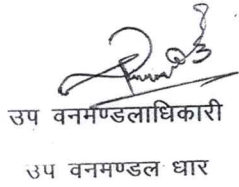 उप वनमण्डलाधिकारी
उप वनमण्डल धार